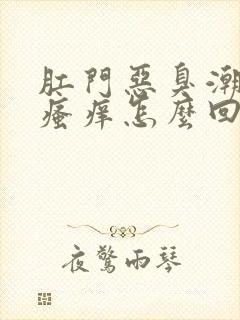 肛門惡臭潮
瘙癢怎麼回
夜驚雨琴